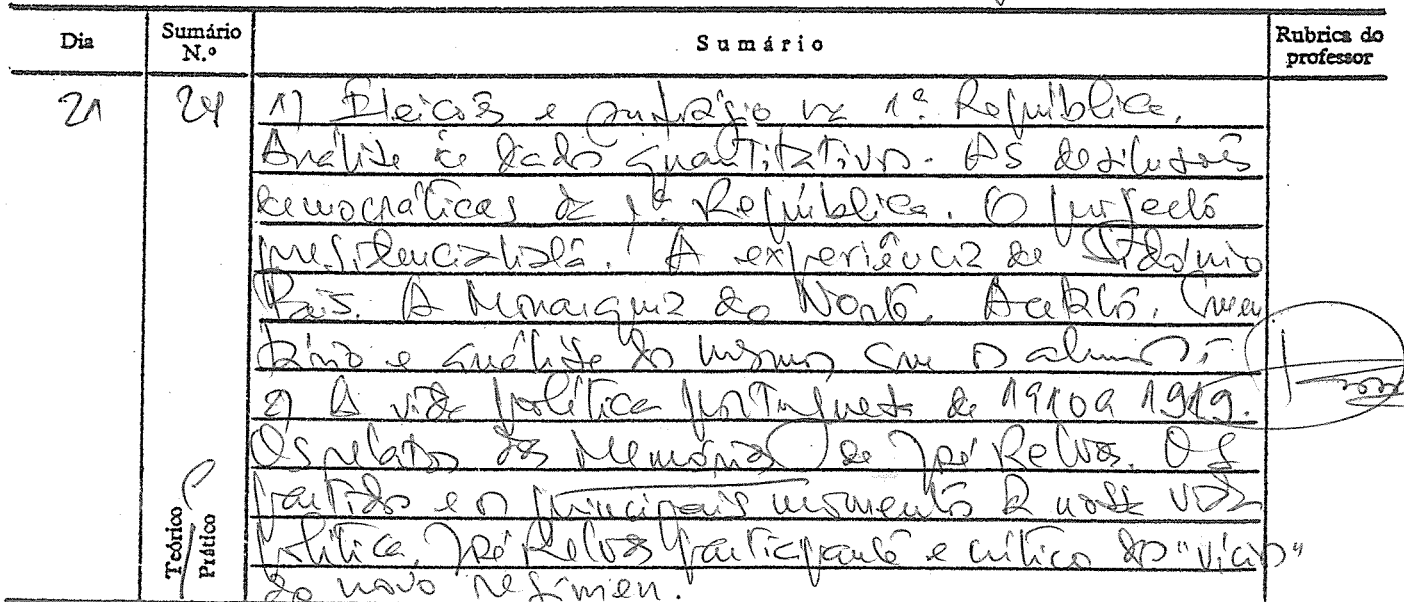 Dia Sumário N.º Sumário Rubrica do professor
21 24 1) Eleições e sufrágio na 1ª República.
Análise de dados quantitativos. As desilusões
democráticas da 1ª República. O projecto
presidencialista. A experiência de Sidónio
Pais. A Monarquia do Norte. Comen
tário e análise do mesmo com os alunos.
2) A vida política portuguesa de 1910 a 1919.
Os relatos das Memórias de José Relvas. Os
partidos e os principais momentos da nossa vida
política. José Relvas participante e crítico dos "vícios"
do novo regímen.
Teórico
Prático